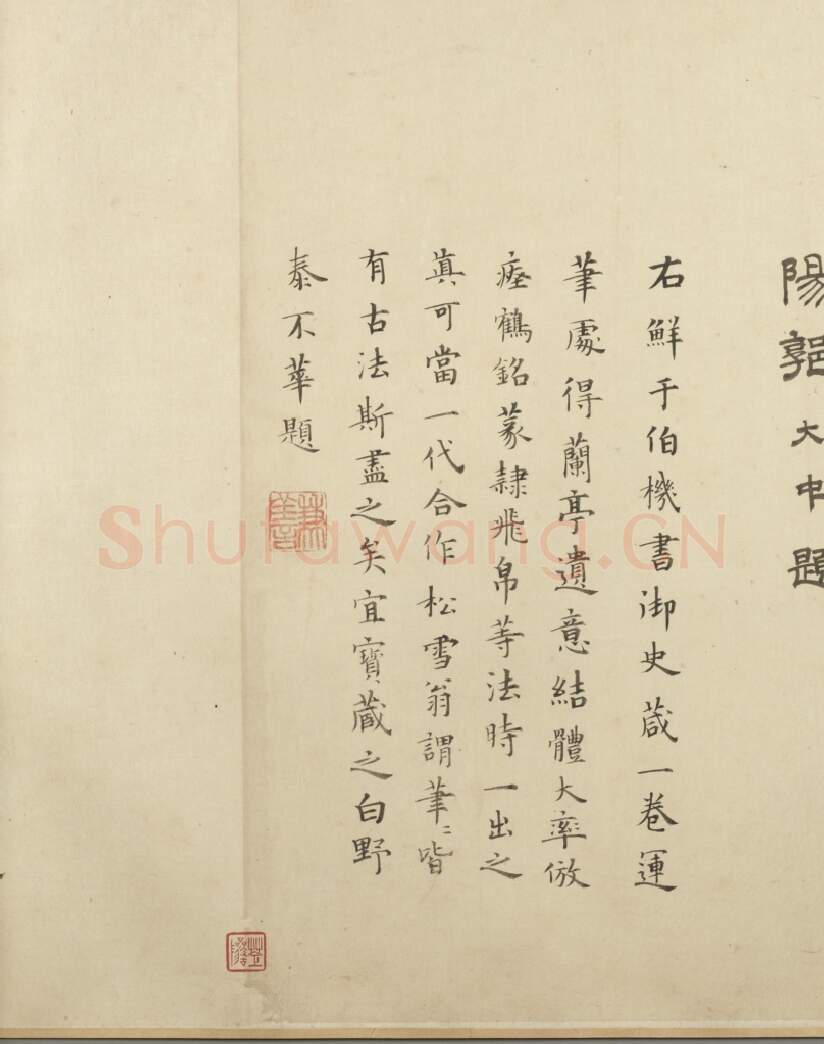 陽郭大中題
右鮮于伯機書御史箴一卷運
筆處得蘭亭遺意結體大率倣
瘞鶴銘篆隸飛帛等法時一出之
真可當一代合作松雪翁謂筆〻皆
有古法斯盡之矣宜寶藏之白野
泰不華題
兼善
Shufawang.CN